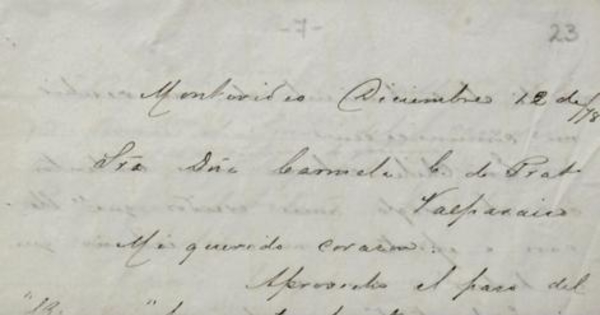 -7-
23
Montevideo Diciembre 12 de/78
Sra Dña Carmela C. de Prat
Valparaiso
Mi querido corazon:
Aprovecho el paso del